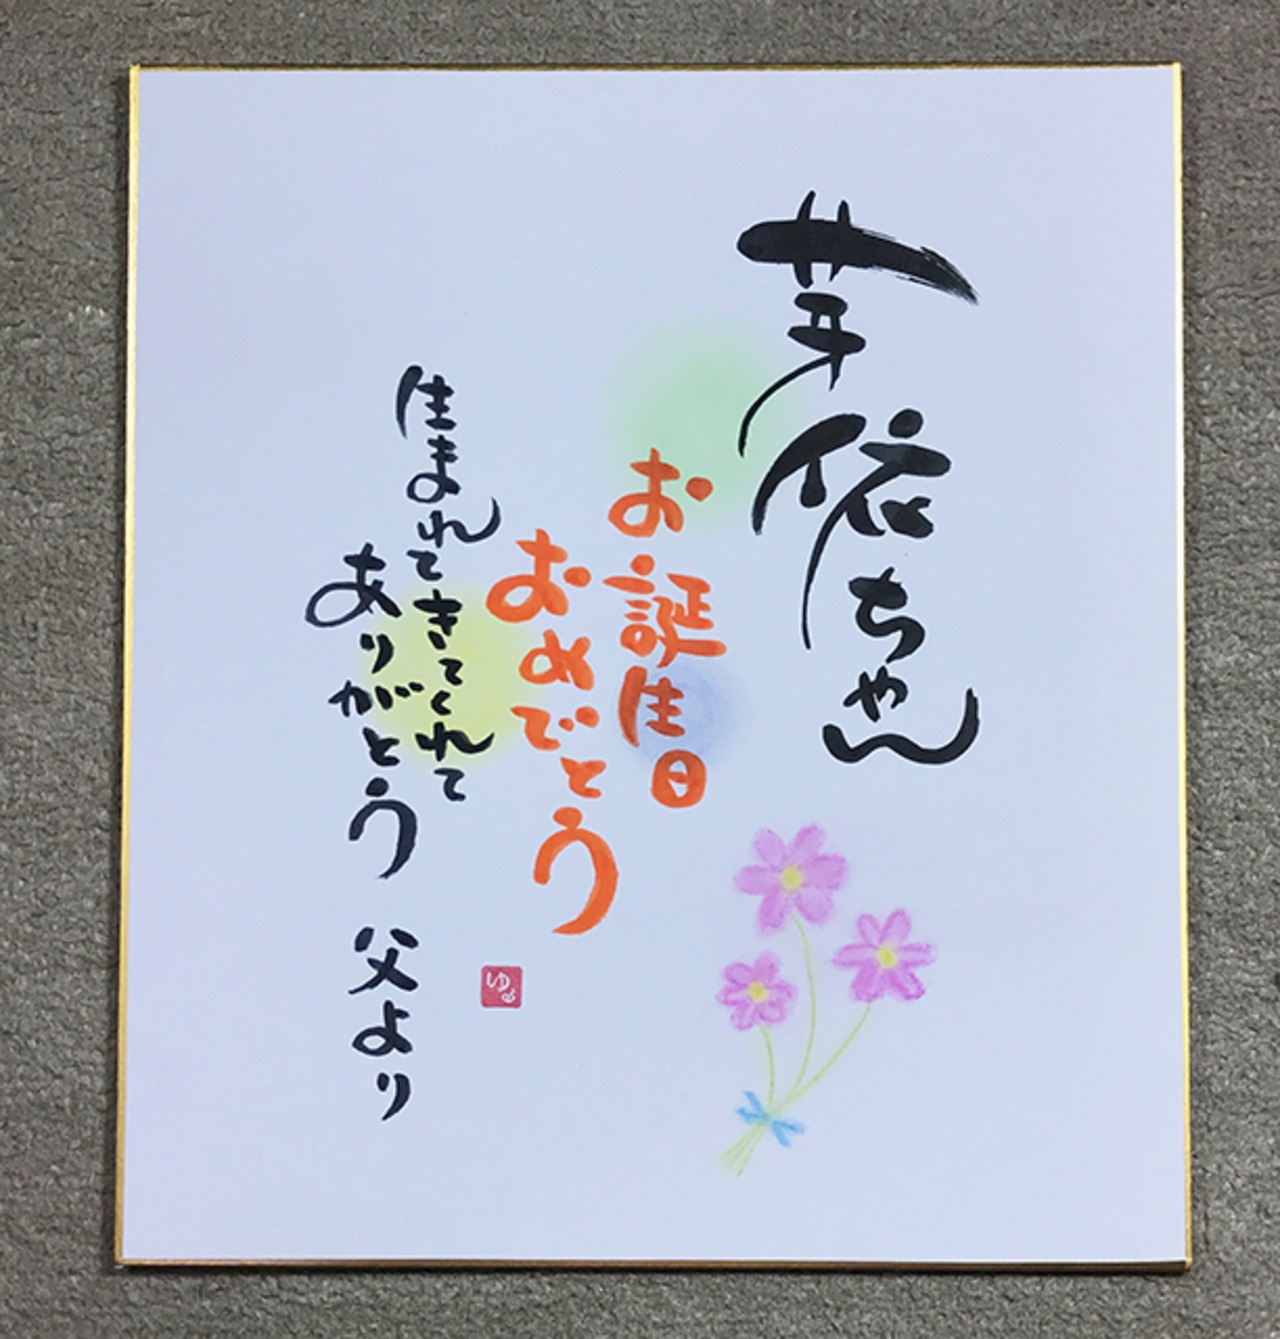 芽依ちゃん
お誕生日
おめでとう
生まれてきてくれて
ありがとう 父より